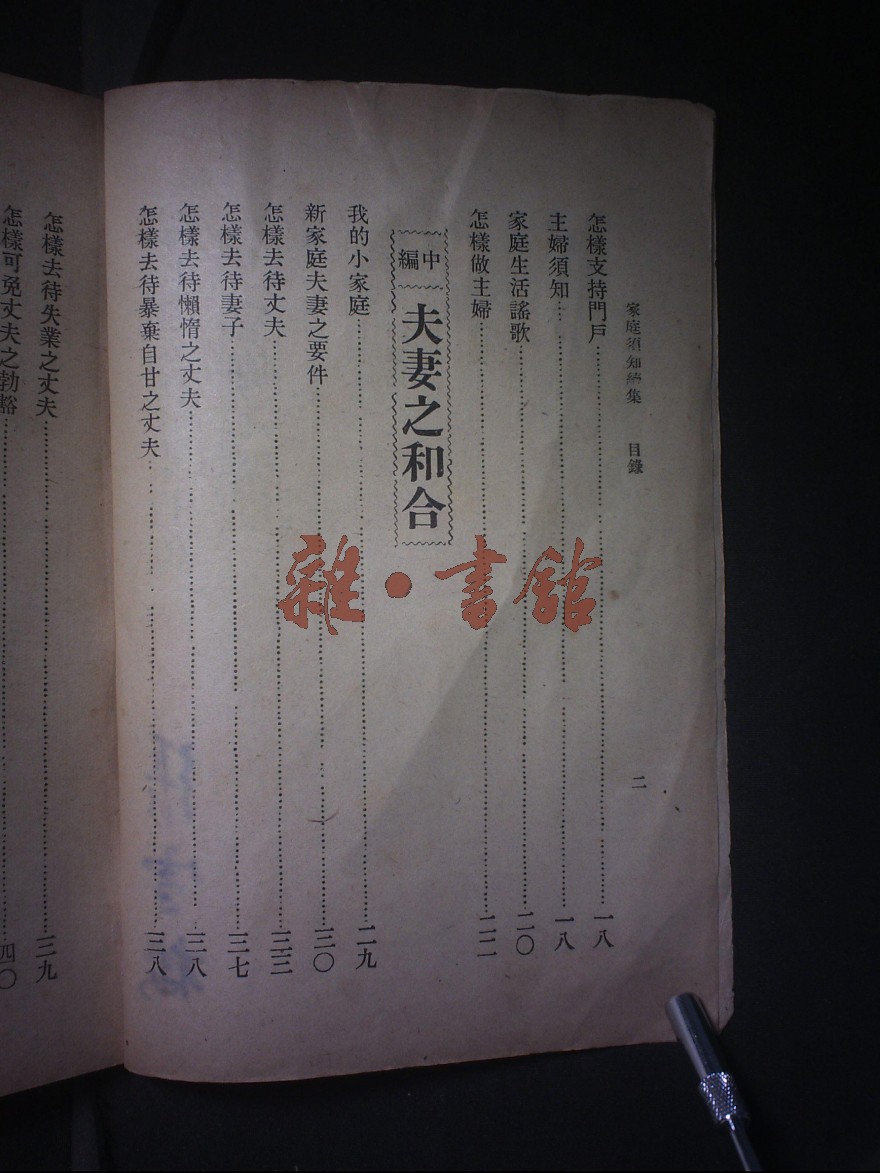 家庭須知續集　目錄　二
怎樣支持門戶……一八
主婦須知……一八
家庭生活謠歌……二〇
怎樣做主婦……二二
中編　夫妻之和合
我的小家庭……二九
新家庭夫妻之要件……三〇
怎樣去待丈夫……三三
怎樣去待妻子……三七
怎樣去待懶惰之丈夫……三八
怎樣去待暴棄自甘之丈夫……三八
怎樣去待失業之丈夫……三九
怎樣可免丈夫之勃谿……四〇
雜・書館